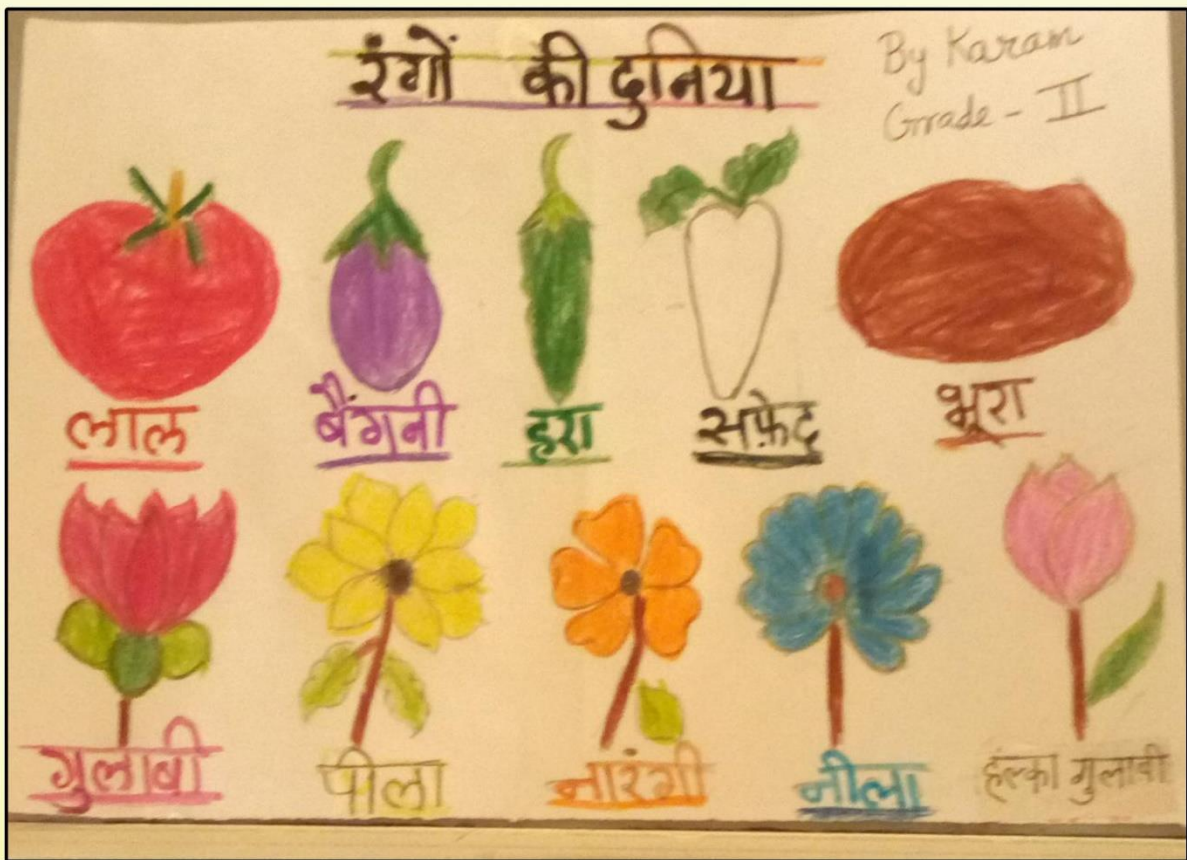 रंगों की दुनिया
By Karam
Grade - II
लाल
बैंगनी
हरा
सफ़ेद
भूरा
गुलाबी
पीला
नारंगी
नीला
हल्का गुलाबी